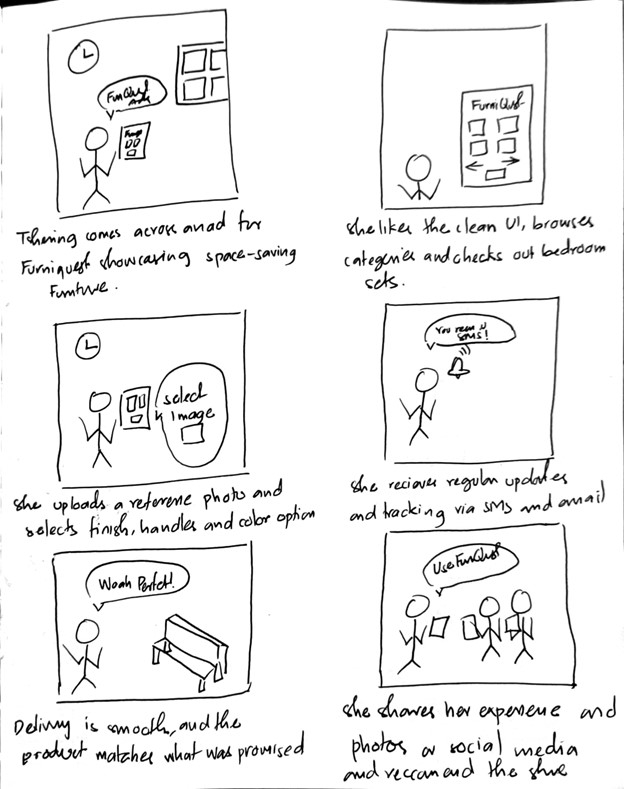 FunQust
Ads
Tshering comes across an ad for
Furniquest showcasing space-saving
Furniture.
FurniQust
she likes the clean UI, browses
categories and checks out bedroom
sets.
select
Image
she uploads a reference photo and
selects finish, handles and color option
You
SMS!
she reciaves regular updates
and tracking via SMS and email
Woah Perfct!
Delivery is smooth, and the
product matches what was promised
Use FunQust
she shares her experience and
photos on social media
and reccomand the